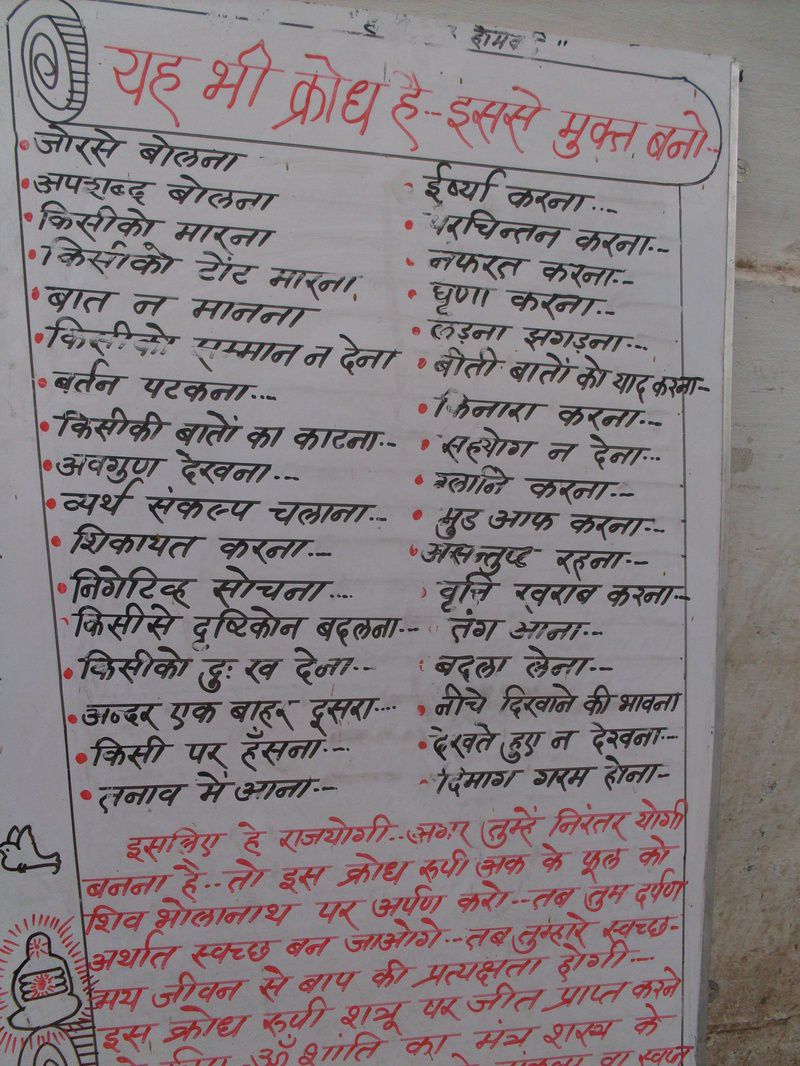 यह भी क्रोध है--इससे मुक्त बनो-
जोरसे बोलना
अपशब्द बोलना
किसीको मारना
किसीको टोंट मारना
बात न मानना
किसीको सम्मान न देना
बर्तन पटकना...
किसीकी बातों का काटना--
अवगुण देखना...
व्यर्थ संकल्प चलाना...
शिकायत करना--
निगेटिव्ह सोचना....
किसीसे दृष्टिकोन बदलना---
किसीको दुःख देना---
अन्दर एक बाहर दूसरा....
किसी पर हँसना---
तनाव में आना--
ईर्ष्या करना...
परचिन्तन करना--
नफरत करना--
घृणा करना--
लड़ना झगड़ना...
बीती बातों को याद करना-
किनारा करना...
सहयोग न देना...
ग्लानि करना--
मुड आफ करना...
असन्तुष्ट रहना--
वृत्ति खराब करना-
तंग आना...
बदला लेना--
नीचे दिखाने की भावना
देखते हुए न देखना--
दिमाग गरम होना-
इसलिए हे राजयोगी..अगर तुम्हें निरंतर योगी
बनना है..तो इस क्रोध रूपी अक के फूल को
शिव भोलानाथ पर अर्पण करो--तब तुम दर्पण
अर्थात स्वच्छ बन जाओगे--तब तुम्हारे स्वच्छ-
मय जीवन से बाप की प्रत्यक्षता होगी---
इस क्रोध रूपी शत्रू पर जीत प्राप्त करने
ॐ शांति का मंत्र शस्त्र के